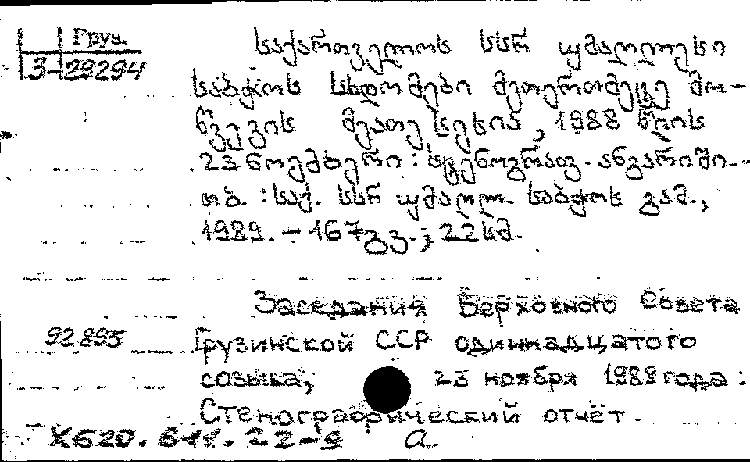 Груз.
3-29294
საქართველოს სსრ უმაღლესი
საბჭოს სხდომები მეთერთმეტე მო-
წვევის მეათე სესია, 1988 წლის
23 ნოემბერი : სტენოგრაფ. ანგარიში. -
თბ. : საქ. სსრ უმაღლ. საბჭოს გამ.,
1989. - 167 გვ. ; 22 სმ.
Заседания Верховного Совета
92895 Грузинской ССР одиннадцатого
созыва, 23 ноября 1988 года :
Стенографический отчёт.
Х620. 22-9 а